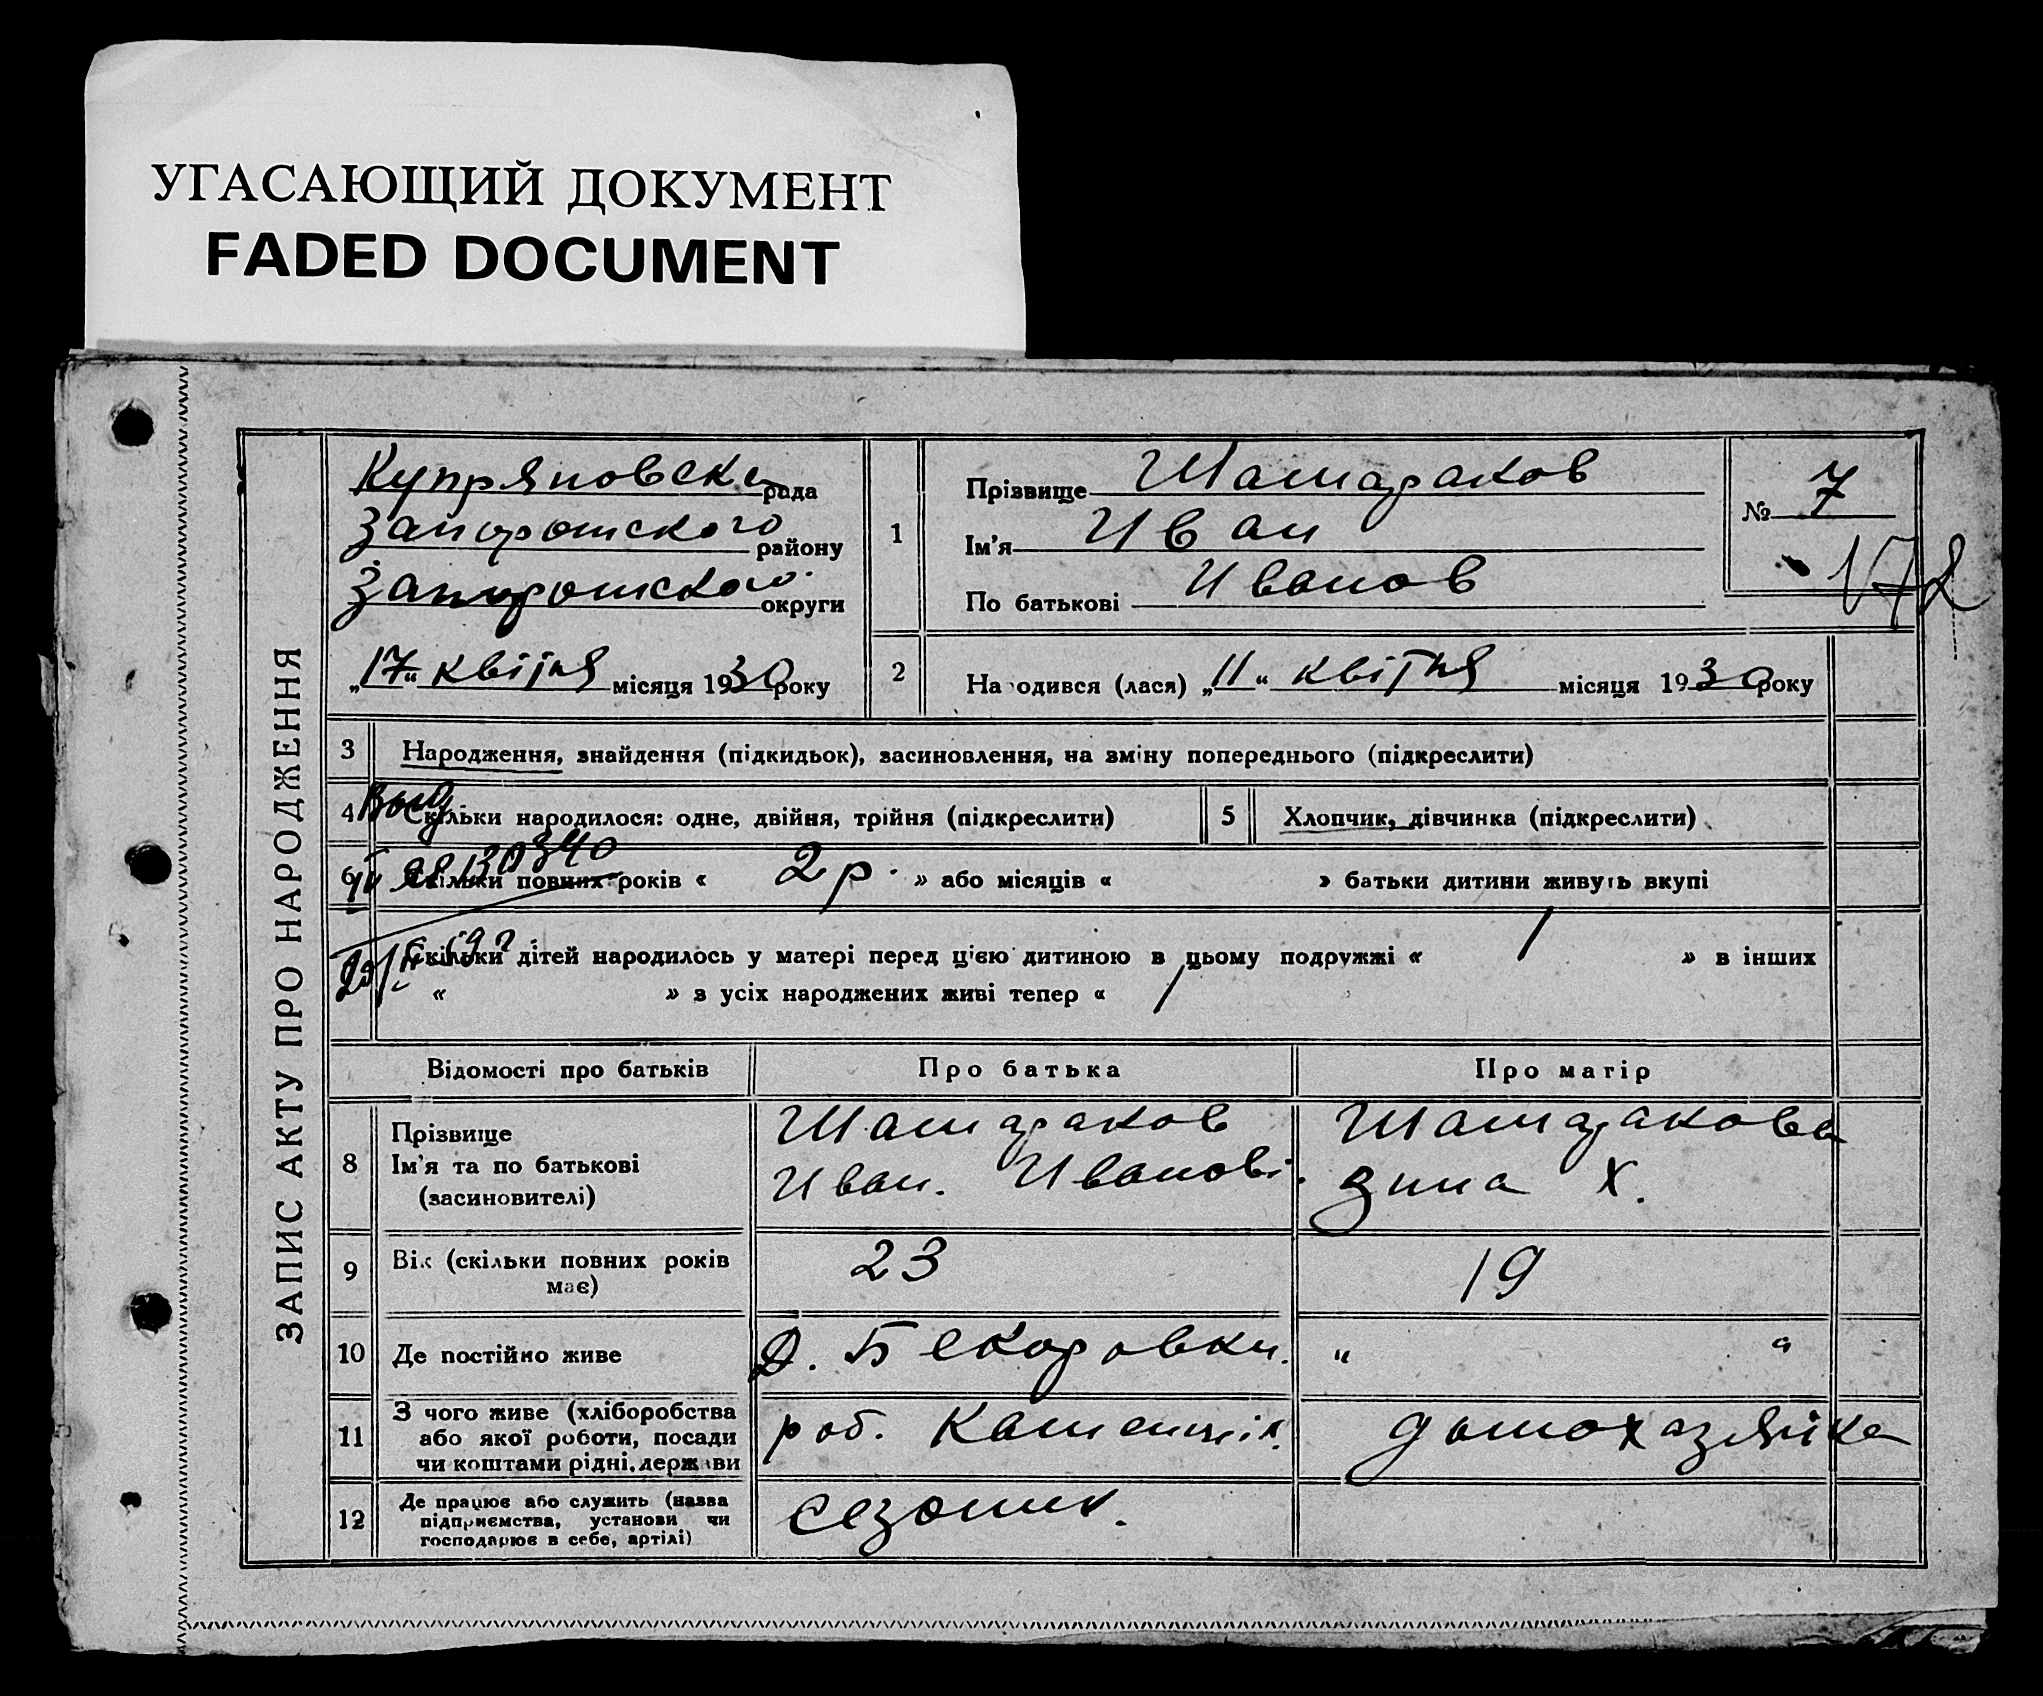 УГАСАЮЩИЙ ДОКУМЕНТ
FADED DOCUMENT
ЗАПИС АКТУ ПРО НАРОДЖЕННЯ
Купряновски рада
Запорошского району
Запорошского округи
„17“ квітня місяця 1930 року
1
Прізвище Шашараков
Ім'я Иван
По батькові Иванов
№ 7
172
2 На одився (лася) „11“ квітня місяця 1930 року
3 Народження, знайдення (підкидьок), засиновлення, на зміну попереднього (підкреслити)
4 Скільки народилося: одне, двійня, трійня (підкреслити)
5 Хлопчик, дівчинка (підкреслити)
6 Скільки повних років « 2 р. » або місяців « » батьки дитини живуть вкупі
Скільки дітей народилось у матері перед ц'єю дитиною в цьому подружжі « 1 » в інших
« » з усіх народжених живі тепер « 1
Відомості про батьків Про батька Про матір
8 Прізвище
Ім'я та по батькові
(засиновителі)
Шашараков
Иван. Иванові.
Шашаракова
Зина Х.
9 Вік (скільки повних років має) 23 19
10 Де постійно живе Д. Бекаровки. " "
11 З чого живе (хліборобства
або якої роботи, посади
чи коштами рідні, держави
роб. Каменщік.
домохазяйка
12 Де працює або служить (назва
підприємства, установи чи
господарює в себе, артілі)
сезоник.